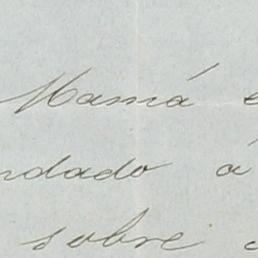 Mamá e
ndado á
sobre